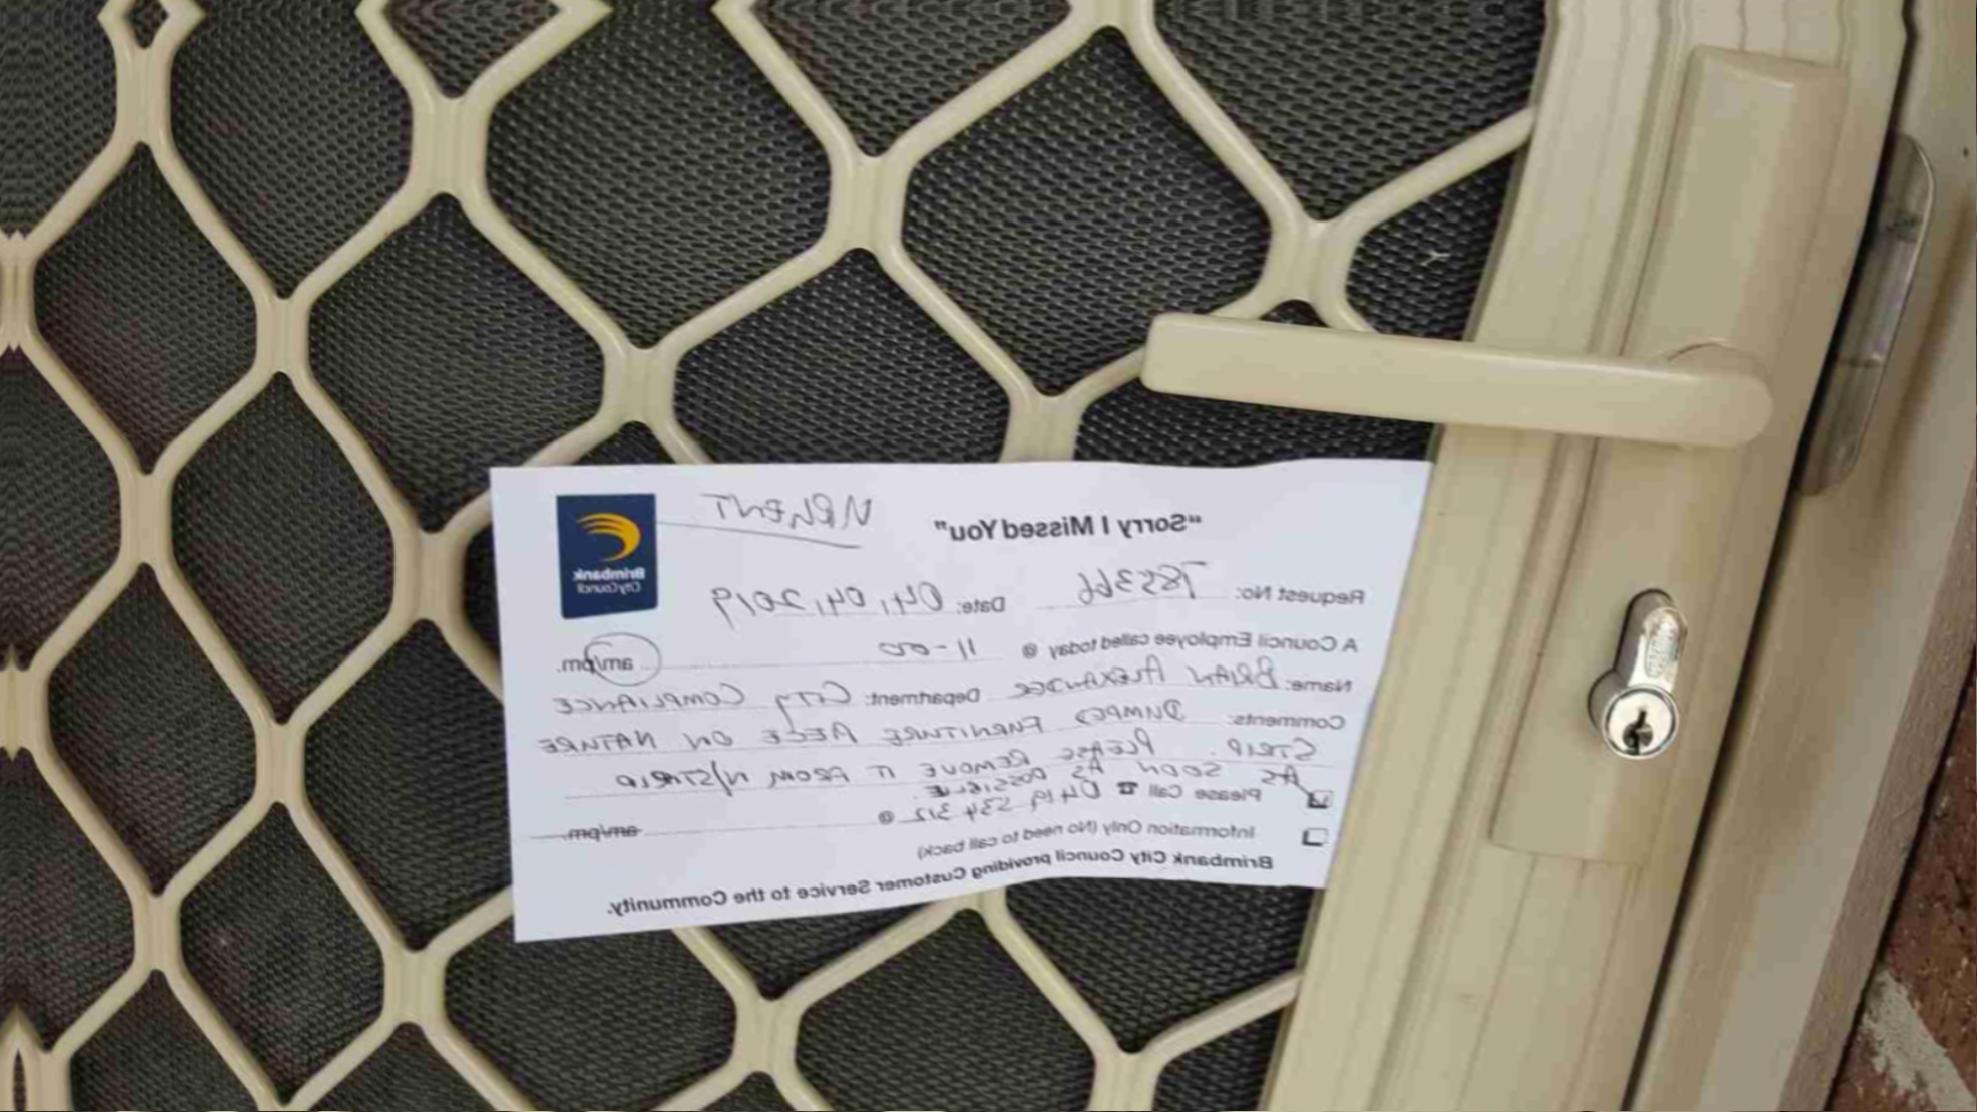 "Sorry I Missed You" URGENT
Brimbank
City Council
Request No: Date: 04,04,2019
A Council Employee called today @ 11-00 am/pm.
Name: BRIAN ALEXANDER Department: CITY COMPLIANCE
Comments: DUMPED FURNITURE ON NATURE
STRIP. PLEASE REMOVE IT FROM N/STRIP
AS SOON AS POSSIBLE.
Please Call ☎ 0419 534 312 @ am/pm.
Information Only (No need to call back)
Brimbank City Council providing Customer Service to the Community.